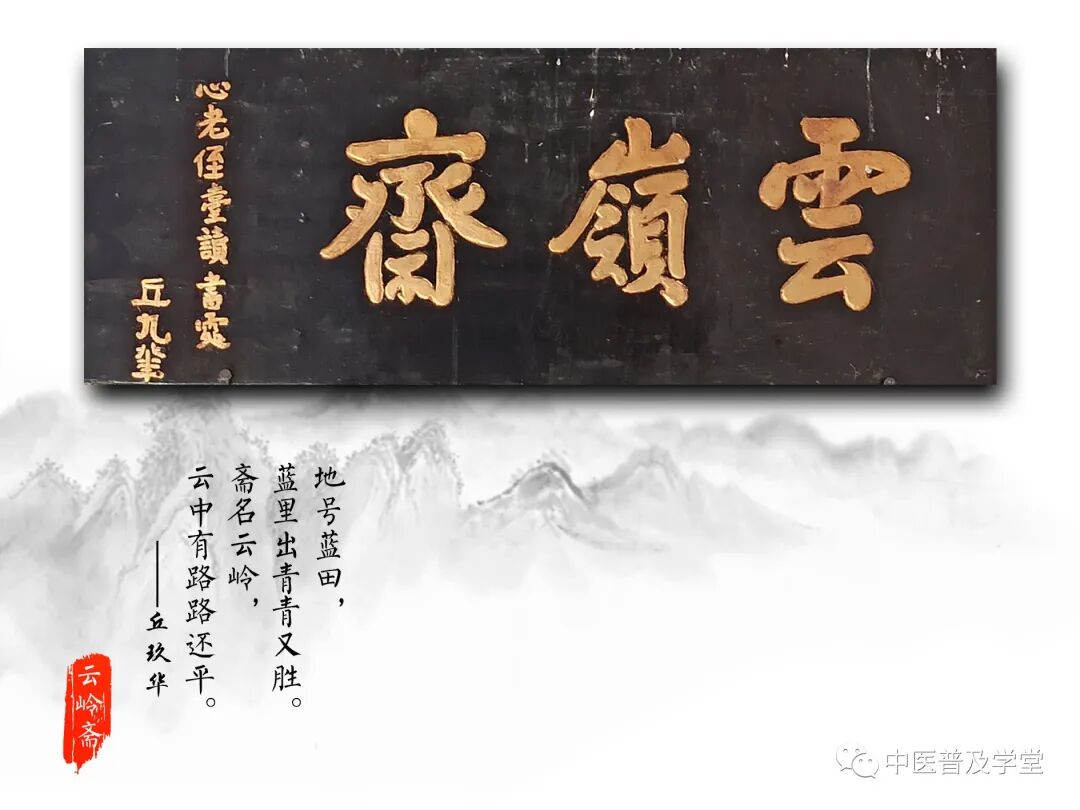 雲嶺齋
心老侄臺讀書處
丘九華
地号蓝田，
蓝里出青青又胜。
斋名云岭，
云中有路路还平。
——丘玖华
云岭斋
中医普及学堂